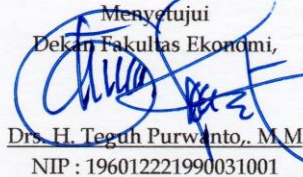 Menyetujui
Dekan Fakultas Ekonomi,
Drs. H. Teguh Purwanto,. M.M
NIP : 196012221990031001